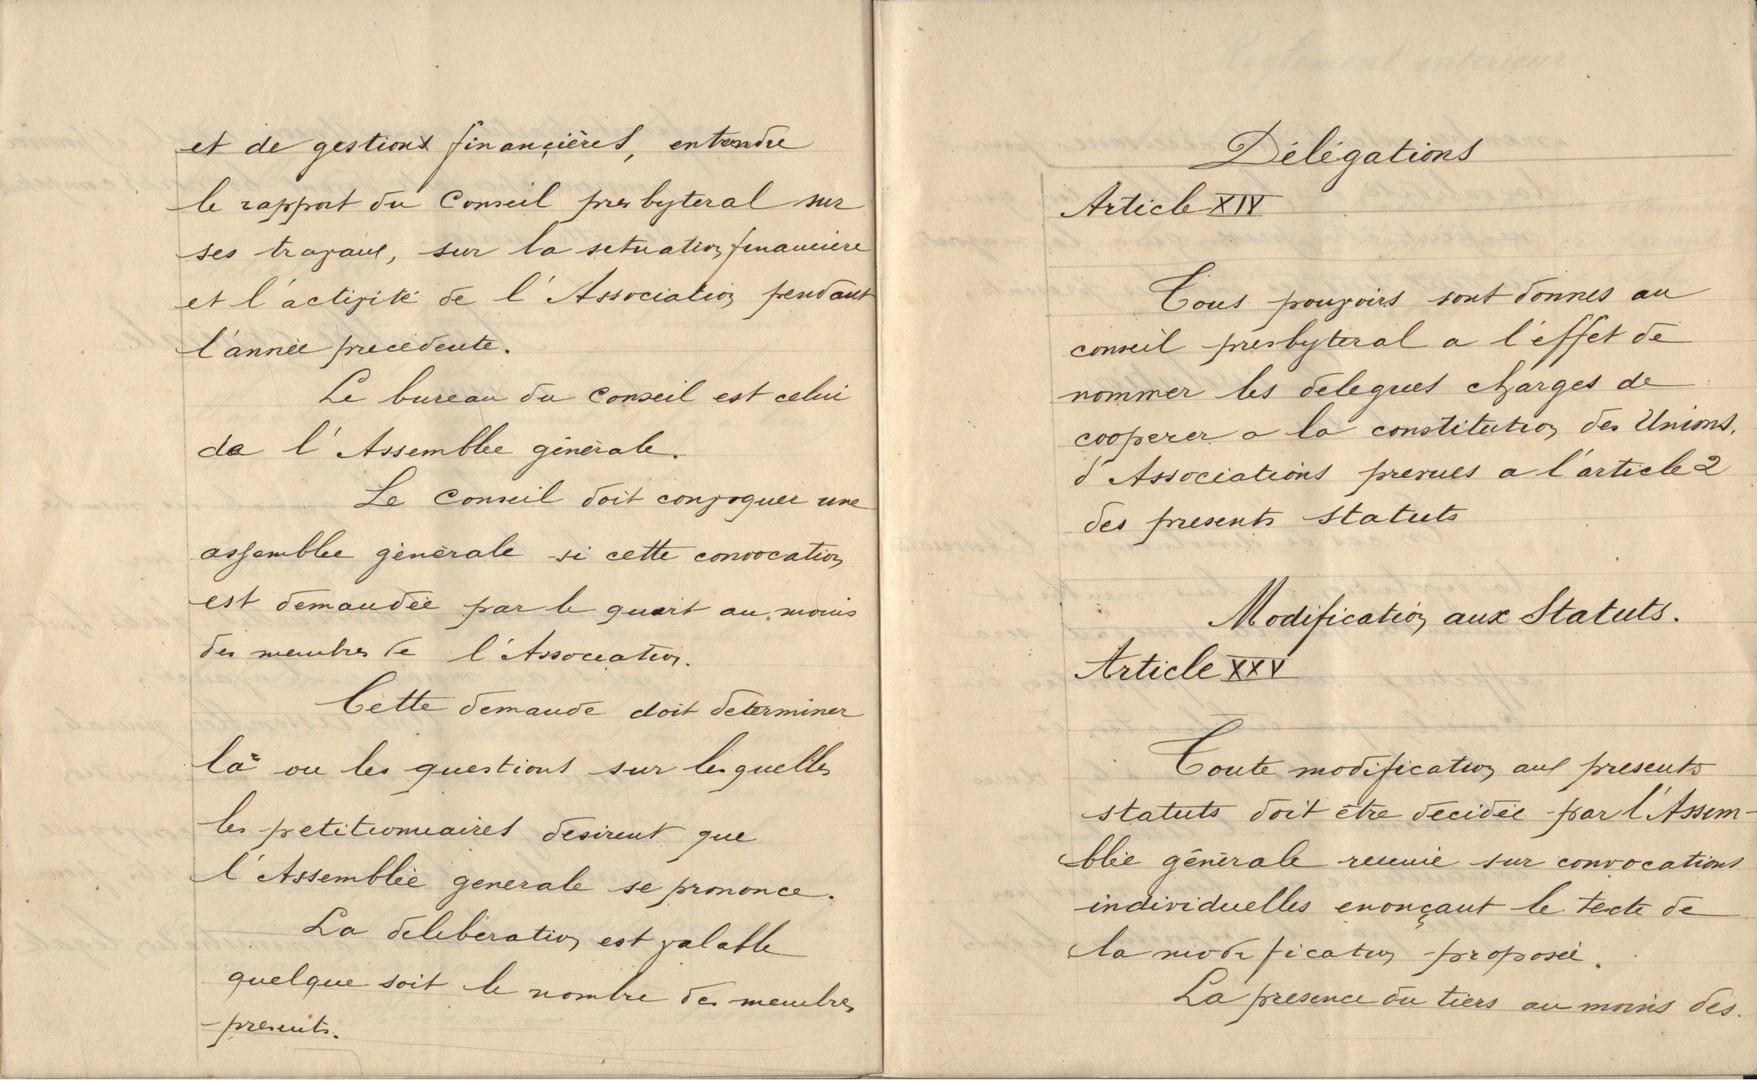 et de gestions financières, entendre
le rapport du Conseil presbyteral sur
ses travaux, sur la situation financiere
et l'activité de l'Association pendant
l'année precedente.
Le bureau du Conseil est celui
de l'Assemblée générale.
Le Conseil doit convoquer une
assemblée générale si cette convocation
est demandée par le quart au moins
des membres de l'Association.
Cette demande doit determiner
la ou les questions sur lesquelles
les petitionnaires desirent que
l'Assemblée generale se prononce.
La deliberation est valable
quelque soit le nombre des membres
presents.
Délégations
Article XIV
Tous pouvoirs sont donnes au
conseil presbyteral a l'effet de
nommer les delegues charges de
cooperer a la constitution des Unions.
d'Associations prevues a l'article 2
des presents statuts
Modification aux Statuts.
Article XXV
Toute modification aux presents
statuts doit être decidée par l'Assem-
blée générale reunie sur convocations
individuelles enonçant le texte de
la modification proposée.
La presence du tiers au moins des.